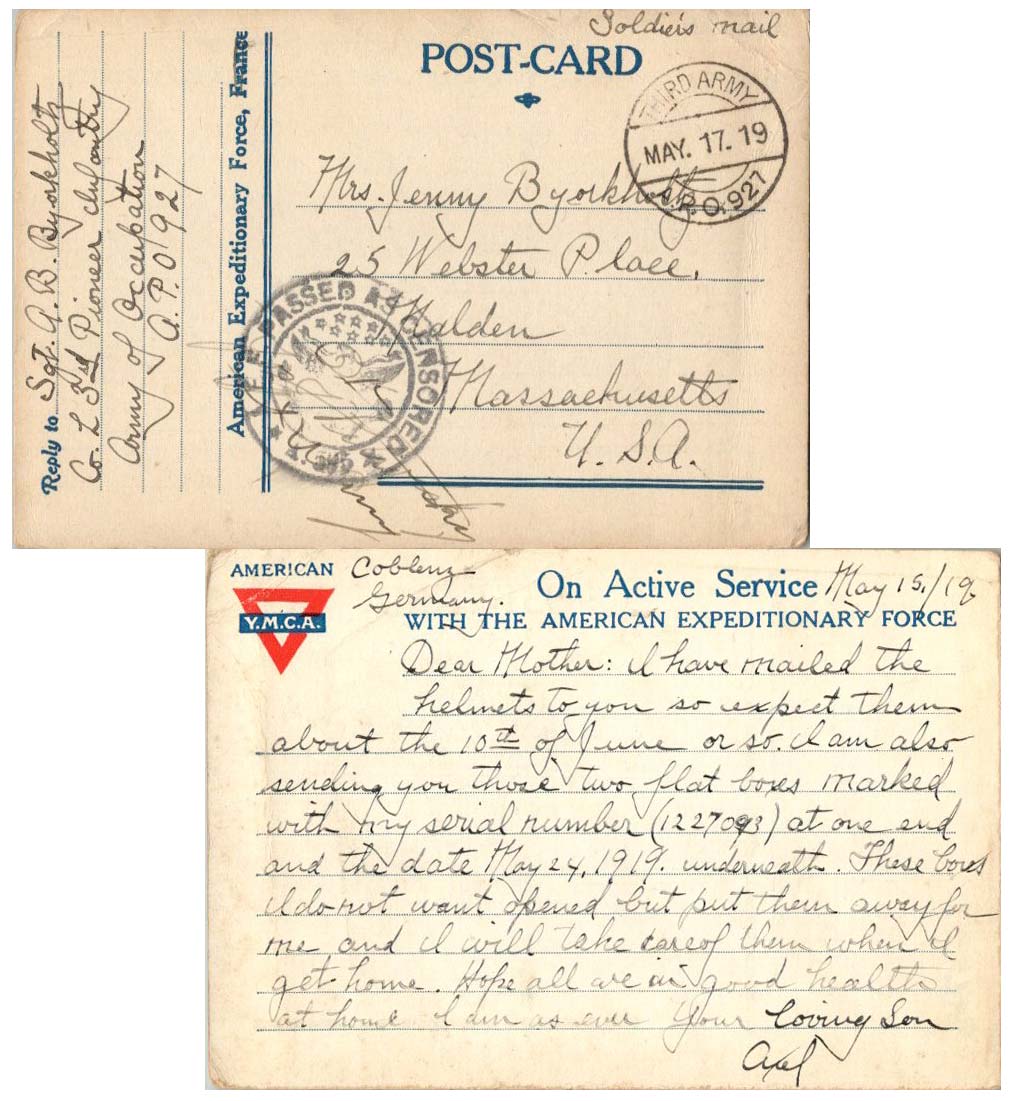 Soldier's mail
POST-CARD
THIRD ARMY
MAY. 17. 19
A.P.O. 927
Mrs. Jenny Byorkholtz
25 Webster Place,
Malden
Massachusetts
U.S.A.
Reply to Sgt. A. B. Byorkholtz
Co. L 3rd Pioneer Infantry
Army of Occupation
A.P.O. 927
American Expeditionary Force, France
A.E.F. PASSED AS CENSORED
AMERICAN
Y.M.C.A.
Coblenz
Germany.
On Active Service May 15,/19.
WITH THE AMERICAN EXPEDITIONARY FORCE
Dear Mother: I have mailed the
helmets to you so expect them
about the 10th of June or so. I am also
sending you those two flat boxes marked
with my serial number (1227093) at one end
and the date May 24, 1919. underneath. These boxes
I do not want opened but put them away for
me and I will take care of them when I
get home. Hope all are in good health
at home I am as ever Your loving Son
Axel